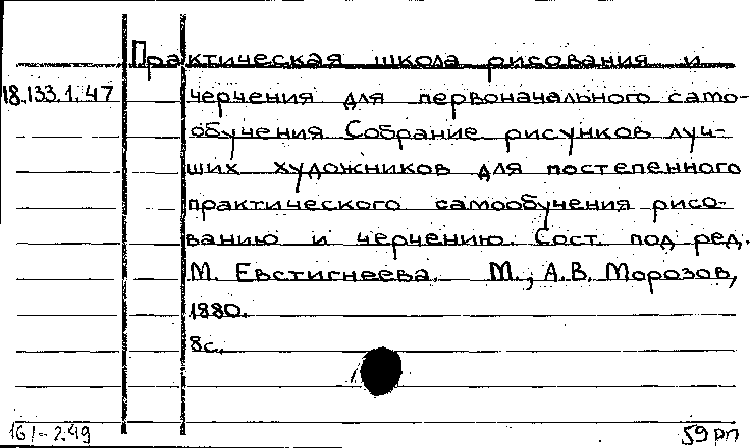 Практическая школа рисования и
18.133.1.47 черчения для первоначального само-
обучения Собрание рисунков луч-
ших художников для постепенного
практического самообучения рисо-
ванию и черчению. Сост. под ред.
М. Евстигнеева. М., А.В. Морозов,
1880.
8с.
161-249 59 рп